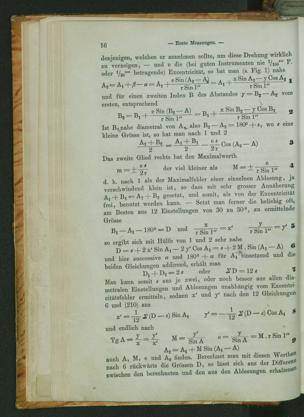 16 — Erste Messungen. —
denjenigen, welchen er annehmen sollte, um diese Drehung wirklich
zu verzeigen, — und e die (bei guten Instrumenten nie
oder betragende) Excentricität, so hat man (s. Fig. 1) nahe
A₂ = A₁ + β − α = A₁ + e Sin (A₂ − A) / r Sin 1" = A₁ + x Sin A₂ − y Cos A₂ / r Sin 1" 1
und für einen zweiten Index B des Abstandes γ = B₂ — A₂ vom
ersten, entsprechend
B₂ = B₁ + e Sin (B₂ — A) / r Sin 1" = B₁ + x Sin B₂ — y Cos B₂ / r Sin 1" 2
Ist B₂ nahe diametral von A₂, also B₂ — A₂ = 180° + ε, wo ε eine
kleine Grösse ist, so hat man nach 1 und 2
A₂ + B₂ / 2 = A₁ + B₁ / 2 — e ε / 2 r Cos (A₂ — A) 3
Das zweite Glied rechts hat den Maximalwerth
m = ± e ε / 2 r der viel kleiner als M = ± e / r Sin 1" 4
d. h. nach 1 als der Maximalfehler einer einzelnen Ablesung, ja
verschwindend klein ist, so dass mit sehr grosser Annäherung
A₁ + B₁ = A₂ + B₂ gesetzt, und somit, als von der Excentricität
frei, benutzt werden kann. — Setzt man ferner die beliebig oft,
am Besten aus 12 Einstellungen von 30 zu 30°, zu ermittelnde
Grösse
B₁ — A₁ — 180° = D und x / r Sin 1" = x' y / r Sin 1" = y' 5
so ergibt sich mit Hülfe von 1 und 2 sehr nahe
D = ε + 2 x' Sin A₁ — 2 y' Cos A₁ = ε + 2 M . Sin (A₁ — A) 6
und hier successive α und 180° + α für A₁ einsetzend und die
beiden Gleichungen addirend, erhält man
D₁ + D₂ = 2 ε oder Σ D = 12 ε 7
Man kann somit ε aus je zwei, oder noch besser aus allen dia-
metralen Einstellungen und Ablesungen unabhängig vom Excentri-
citätsfehler ermitteln, sodann x' und y' nach den 12 Gleichungen
6 und [210] aus
x' = 1 / 12 Σ (D — ε) Sin A₁ y' = — 1 / 12 Σ (D — ε) Cos A₁ 8
und endlich nach
Tg A = y / x = y' / x' M = y' / Sin A e = y / Sin A = M . r Sin 1" 9
A₂ = A₁ + M Sin (A₁ — A)
auch A, M, e und A₂ finden. Berechnet man mit diesen Werthen
nach 6 rückwärts die Grössen D, so lässt sich aus der Differenz
zwischen den berechneten und den aus den Ablesungen erhaltenen